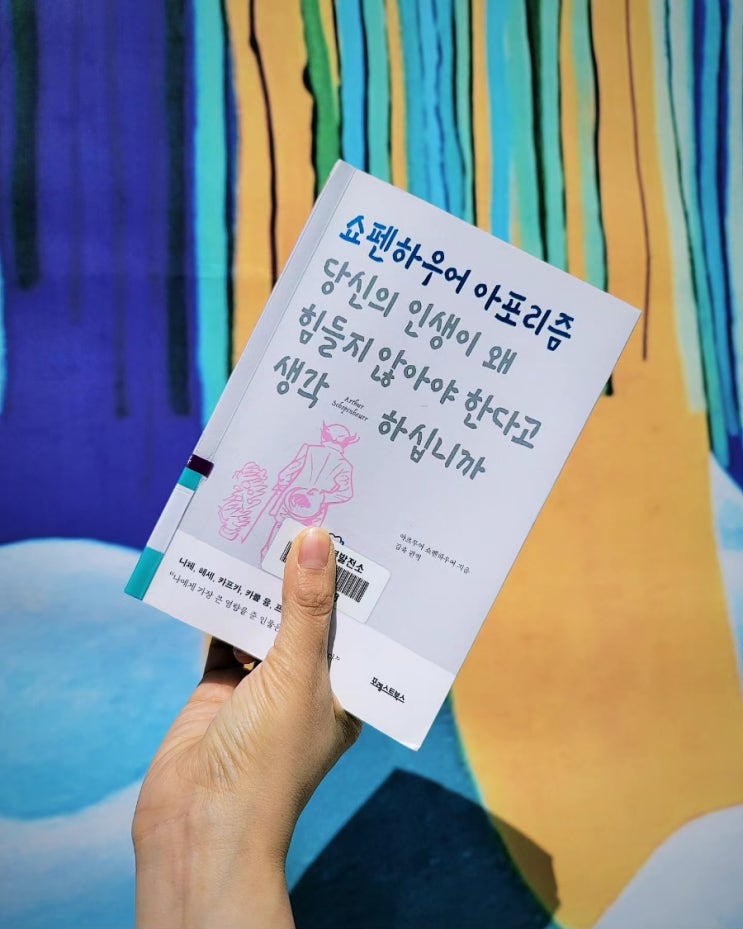 쇼펜하우어 아포리즘
당신의 인생이 왜
힘들지 않아야 한다고
생각
Arthur
Schopenhauer
하십니까
아르투어 쇼펜하우어 지음
김욱 편역
발전소
니체, 헤세, 카프카, 카를 융, 프
“나에게 가장 큰 영향을 준 인물은
포레스트북스